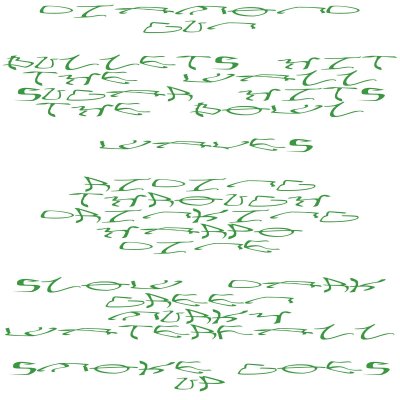 DIAMOND
GUN
BULLETS HIT
THE WALL
SUGAR HITS
THE BOWL
WAVES
RIDING
THROUGH
DRINKING
SLOW DARK
GREEN
MURKY
WATERFALL
SMOKE GOES
UP